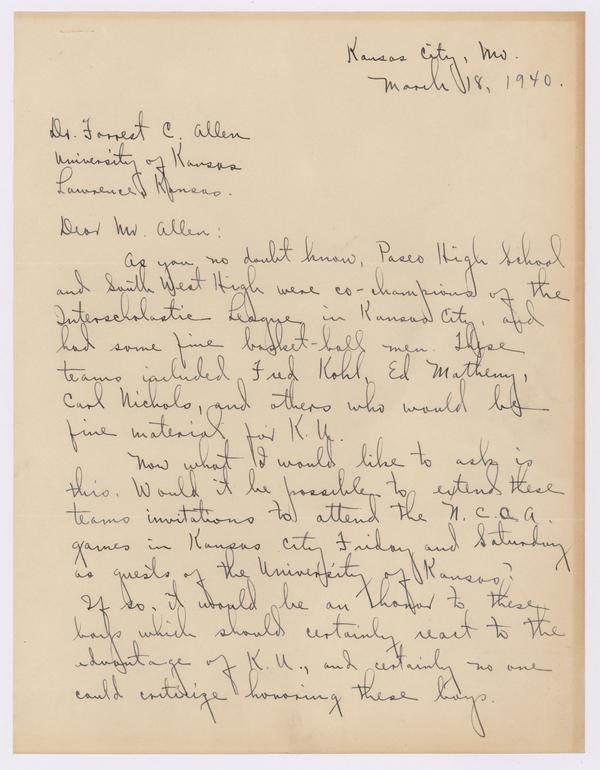 Kansas City, Mo.
March 18, 1940.
Dr. Forrest C. Allen
University of Kansas
Lawrence, Kansas.
Dear Mr. Allen:
As you no doubt know, Paseo High School
and South West High were co-champions of the
Interscholastic League in Kansas City, and
had some fine basket-ball men. These
teams included Fred Kohl, Ed Matheny,
Carl Nichols, and others who would be
fine material for K.U.
Now what I would like to ask is
this. Would it be possible to extend these
teams invitations to attend the N.C.A.A.
games in Kansas City Friday and Saturday
as guests of the University of Kansas?
If so, it would be an honor to these
boys which should certainly react to the
advantage of K.U., and certainly no one
could criticize honoring these boys.